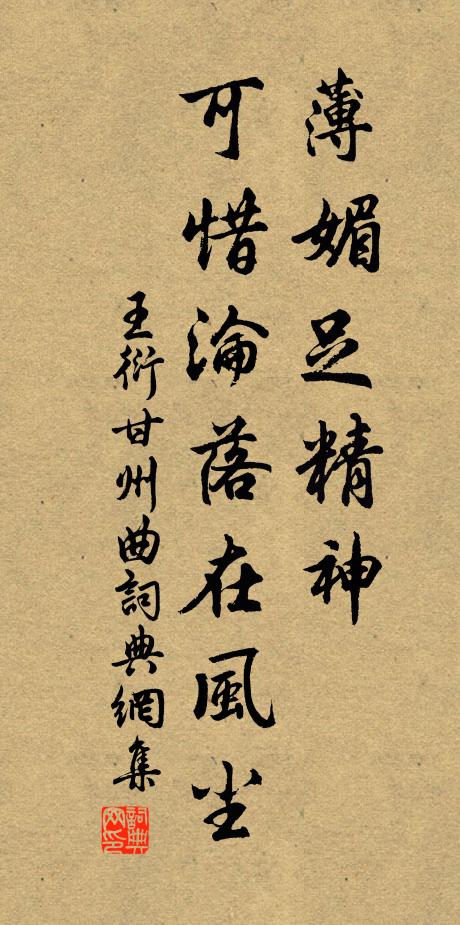 薄媚足精神
可惜淪落在風尘
王衍甘州曲詞典網集
詞典
网印